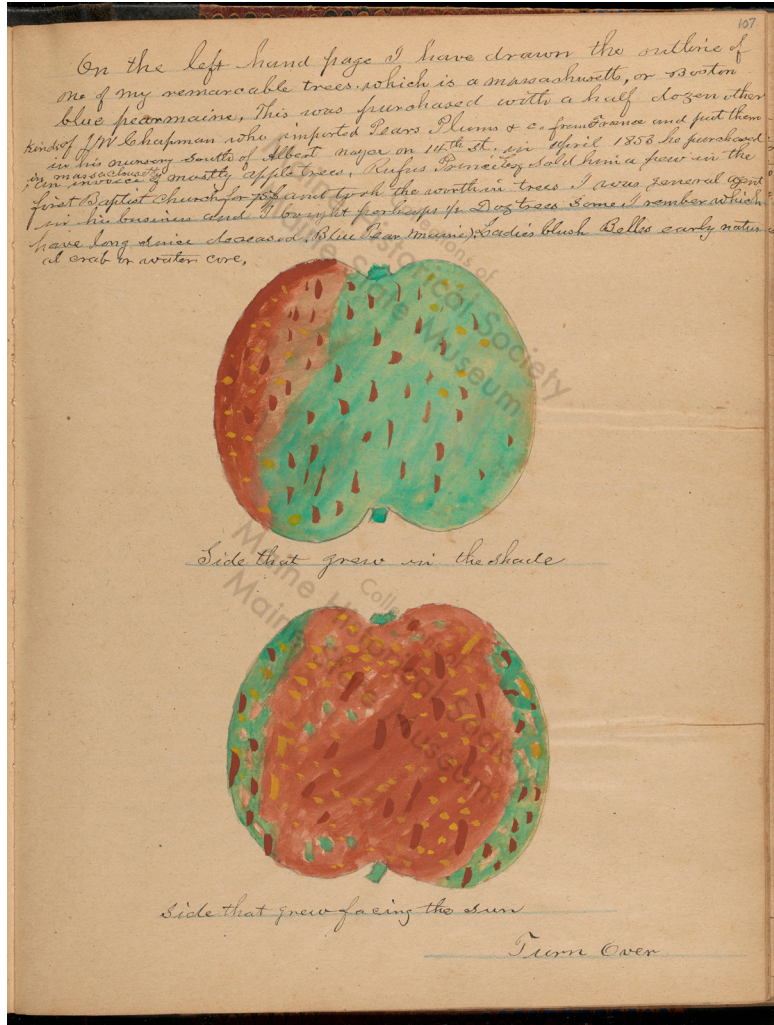 107
On the left hand page I have drawn the outline of
one of my remarcable trees. which is a massachusetts, or Boston
blue pearmaine, This was purchased with a half dozen other
kinds of J W Chapman who imported Pears Plums & c. from France and put them
in his nursery South of Albert nayer on 14th St. in April 1853 he purchased
in massachusetts
an invoice of mostly apple trees, Rufus Prince Esq sold him a pew in the
first Baptist church for and took the worth in trees. I was general agent
in his business and I bought perhaps 1/2 Doz trees Some I rember which
have long since deceased. Blue Pear maine, Ladies blush Belles early natur
al crab or water core,
Side that grew in the shade
Side that grew facing the sun
Turn Over
Collections of
Maine Historical Society
Maine State Museum
Collections of
Maine Historical Society
Maine State Museum